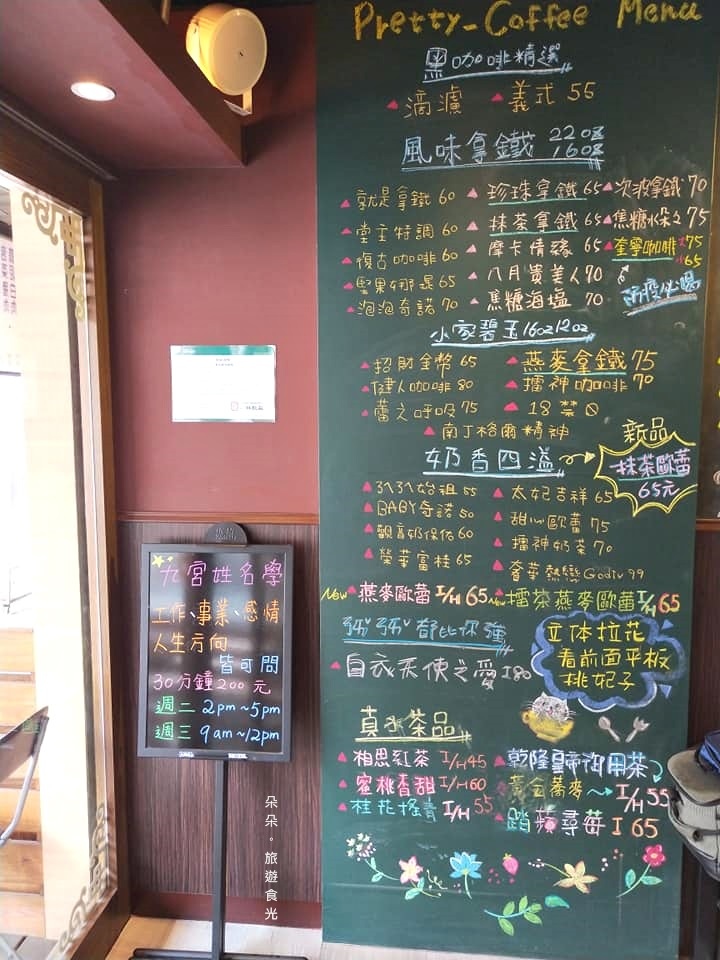 Pretty-Coffee Menu
黑咖啡精選
滴濾 義式 55
風味拿鐵 22oz 16oz
就是拿鐵 60 珍珠拿鐵 65 次波拿鐵 70
堂主特調 60 抹茶拿鐵 65 焦糖朵朵 75
復古咖啡 60 摩卡情緣 65 奎寧咖啡 大75 小65
堅果娜提 65 八月貴美人 70 防疫必喝
泡泡奇諾 70 焦糖海塩 70
小家碧玉 16oz 12oz
招財金幣 65 燕麥拿鐵 75
健人咖啡 80 擂神咖啡 70
蕾之呼吸 75 18禁
南丁格爾精神
新品
奶香四溢 抹茶歐蕾
65元
ㄋㄟㄋㄟ始祖 55 太妃吉祥 65
BABY奇諾 50 甜心歐蕾 75
觀音奶保佑 60 擂神奶茶 70
榮華富桂 65 奢華熱戀Godiv 99
New 燕麥歐蕾 I/H 65 New 擂茶燕麥歐蕾 I/H 65
都比你強
白衣天使之愛 I 80
立体拉花
看前面平板
挑妃子
真水茶品
相思紅茶 I/H 45 乾隆皇帝御用茶
蜜桃香甜 I/H 60 黃金蕎麥 I/H 55
桂花搖青 I/H 55 踏蘋尋莓 I 65
九宮姓名學
工作、事業、感情
人生方向
皆可問
30分鐘200元
週二 2pm~5pm
週三 9am~12pm
朵朵。旅遊食光